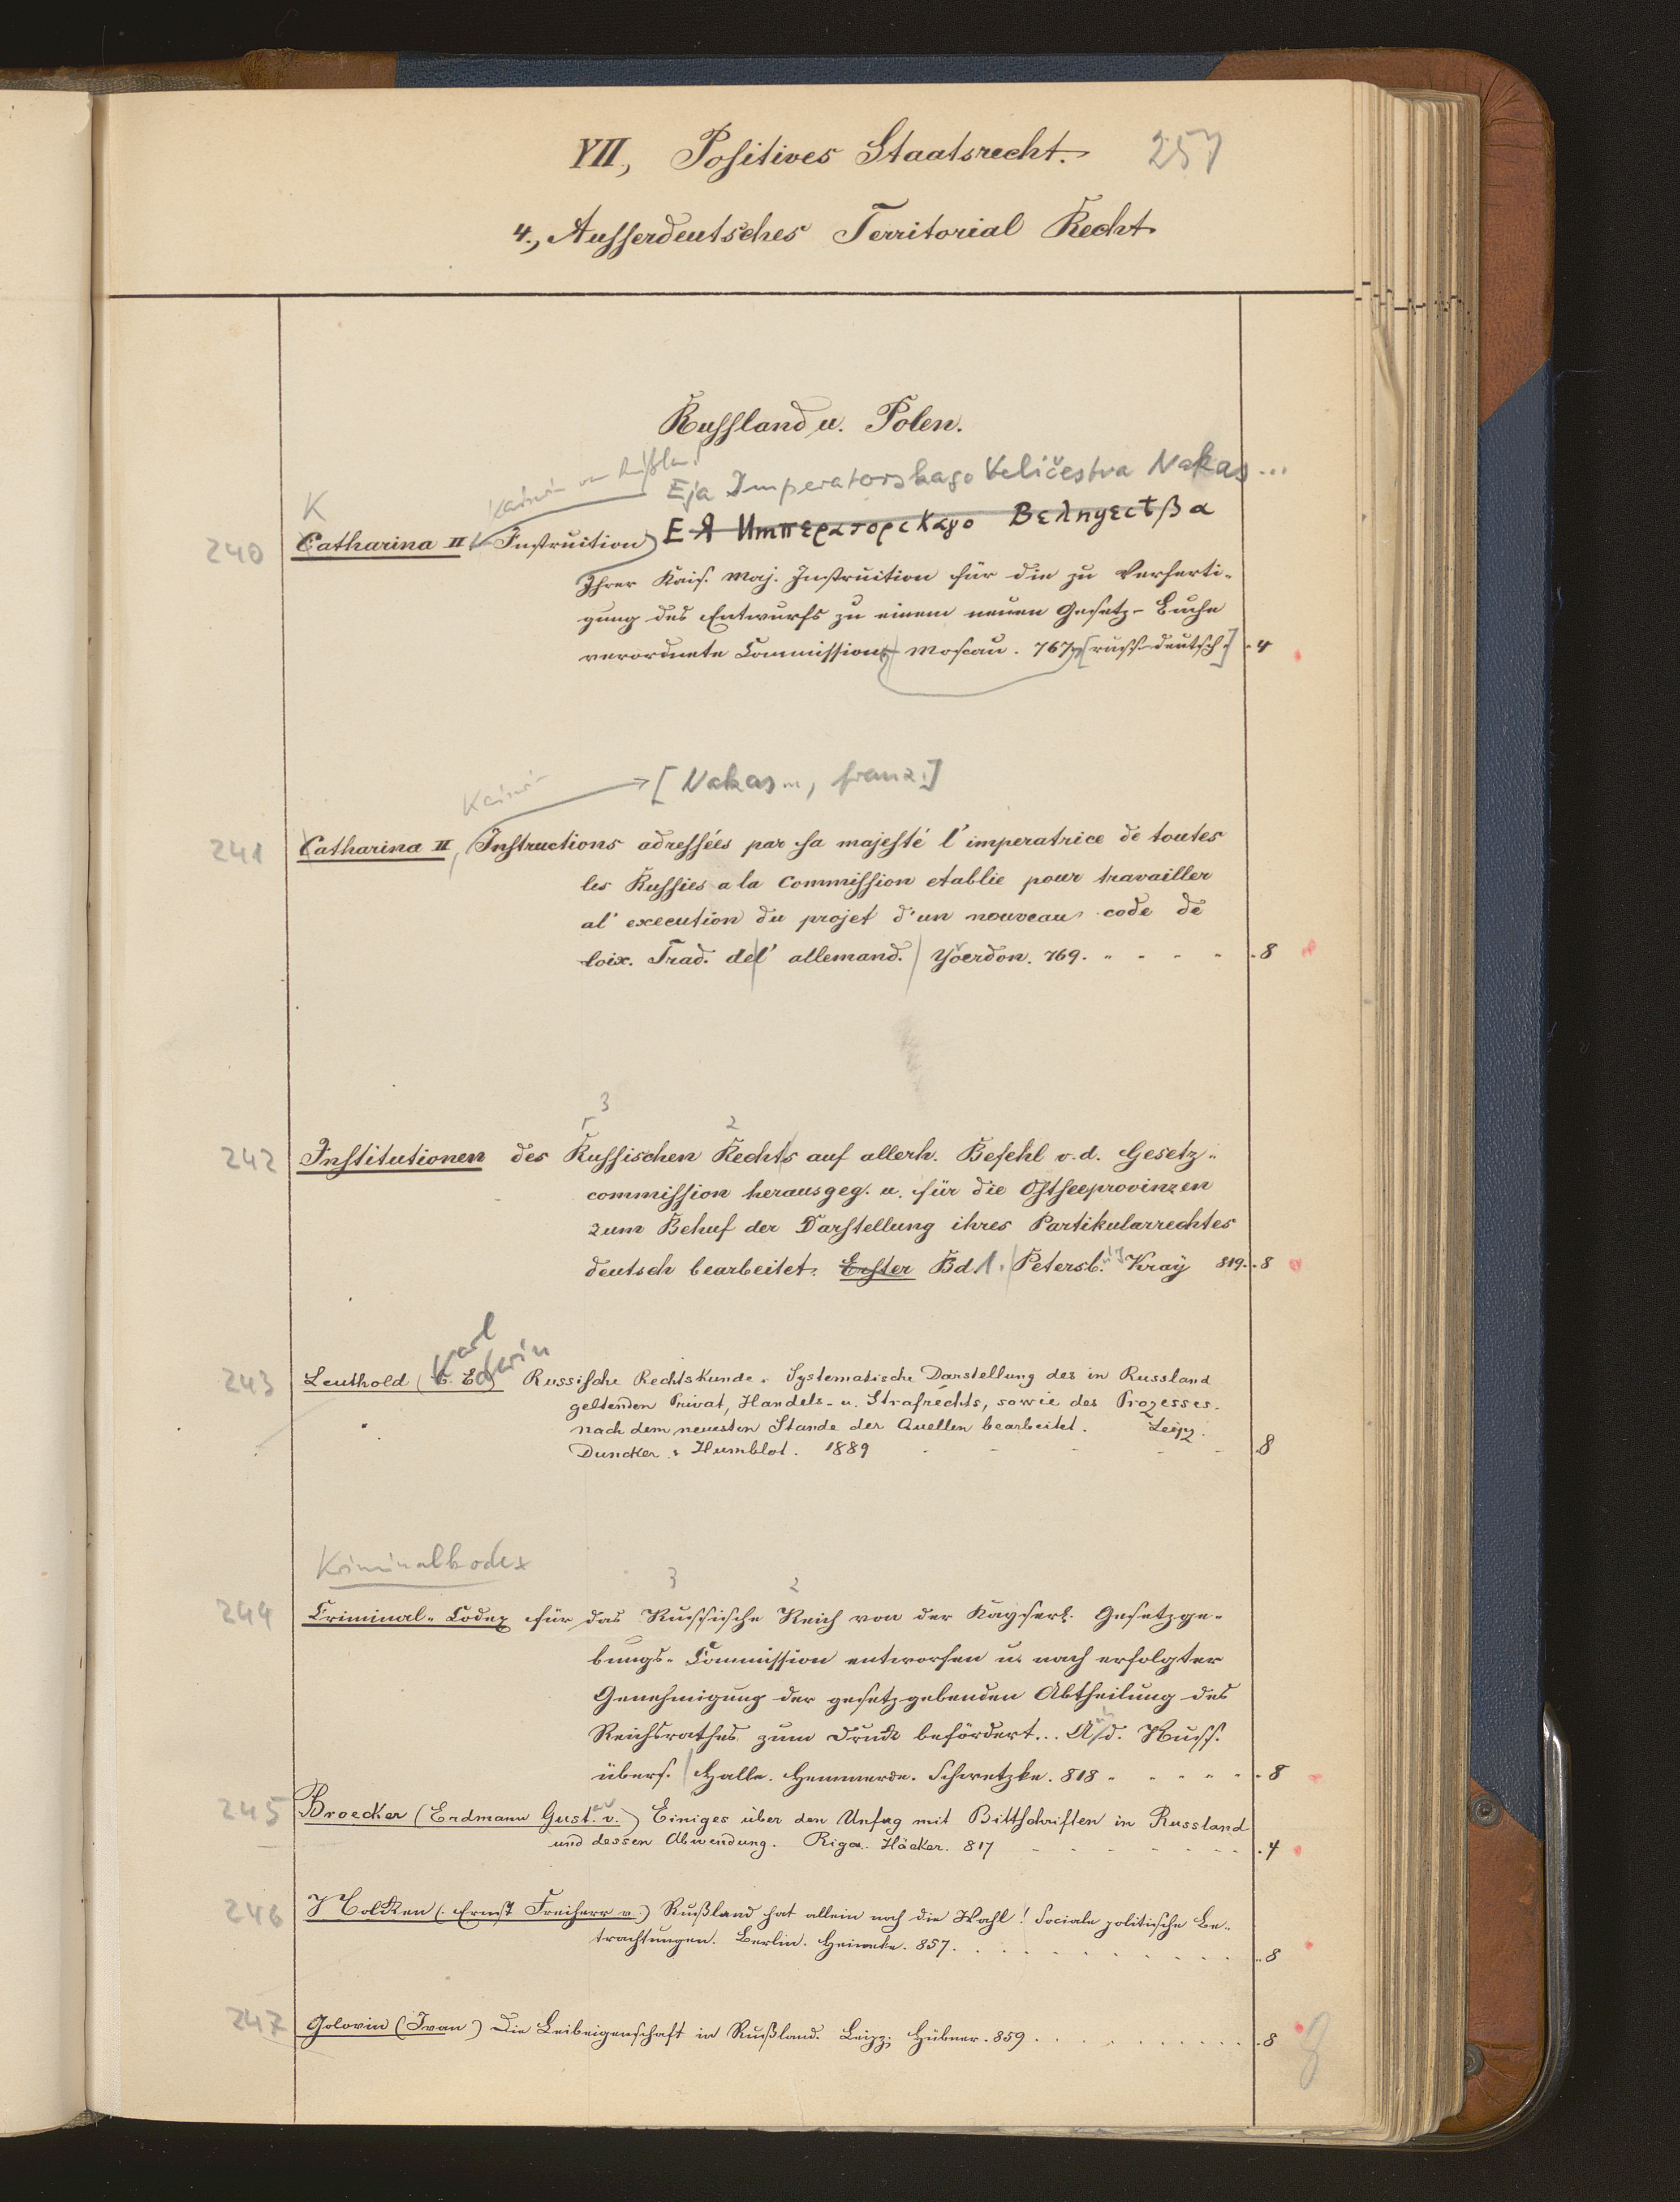 VII, Positives Staatsrecht. 257
4., Ausserdeutsches Territorial Recht
Russland u. Polen.
Eja Imperatorskago Veličestva Nakas ...
K
240 Catharina II Instruition Е Я Императорскаго Величества
Ihrer Kais. Maj. Instruition für die zu Verferti-
gung des Entwurfs zu einem neuen Gesetz-Buche
verordnete Commission Moscau. 767 [russ-deutsch.] 4
[Nakas..., franz.]
241 Catharina II, Instructions adressées par sa majesté l'imperatrice de toutes
les Russies a la Commission etablie pour travailler
al' execution du projet d'un nouveau code de
loix. Trad. de l' allemand. Yverdon. 769. 8
3 2
242 Institutionen des Russischen Rechts auf allerh. Befehl v. d. Gesetz-
commission herausgeg. u. für die Ostseeprovinzen
zum Behuf der Darstellung ihres Partikularrechtes
deutsch bearbeitet. Erster Bd. 1. Petersb. Kraÿ 819. 8
Karl Edwin
243 Leuthold (C. E.) Russische Rechtskunde. Systematische Darstellung des in Russland
geltenden Privat, Handels- u. Strafrechts, sowie des Prozesses.
nach dem neuesten Stande der Quellen bearbeitet. Leipz.
Duncker & Humblot. 1889 8
Kriminalkodex
3 2
244 Criminal-Codex für das Russische Reich von der Kayserl. Gesetzge-
bungs-Commission entworfen u. nach erfolgter
Genehmigung der gesetzgebenden Abtheilung des
Reichsrathes zum Druck befördert... A. d. Russ.
übers. Halle. Hemmerde. Schwetzke. 818 8
245 Broecker (Erdmann Gustav v.) Einiges über den Unfug mit Bittschriften in Russland
und dessen Abwendung. Riga. Häcker. 817 4
246 (Ernst Freiherr v.) Rußland hat allein noch die Wahl! Sociale politische Be-
trachtungen. Berlin. Heinicke. 857. 8
247 Golovin (Ivan) Die Leibeigenschaft in Rußland. Leipz. Hübner. 859 8
8